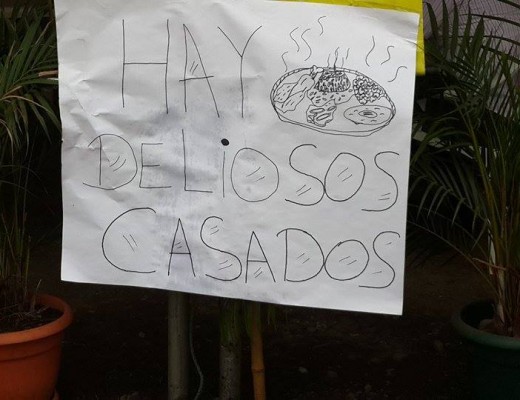 HAY
DELiOSOS
CASADOS